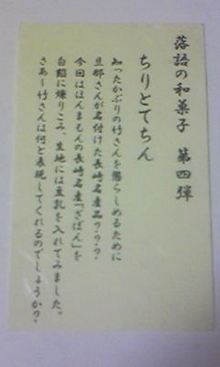 落語の和菓子 第四弾
ちりとてちん
知ったかぶりの竹さんを懲らしめるために
旦那さんが名付けた長崎名産品?・?・?
今回はほんまもんの長崎名産『ざぼん』を
白餡に煉りこみ、生地には豆乳を入れてみました。
さあー竹さんは何と表現してくれるのでしょうか?